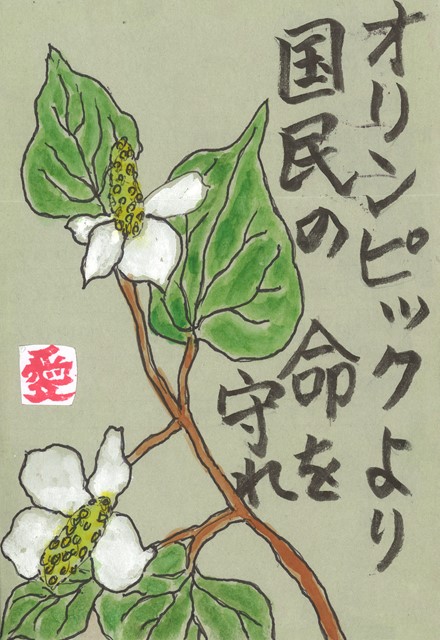 オリンピックより
国民の命を
守れ
愛